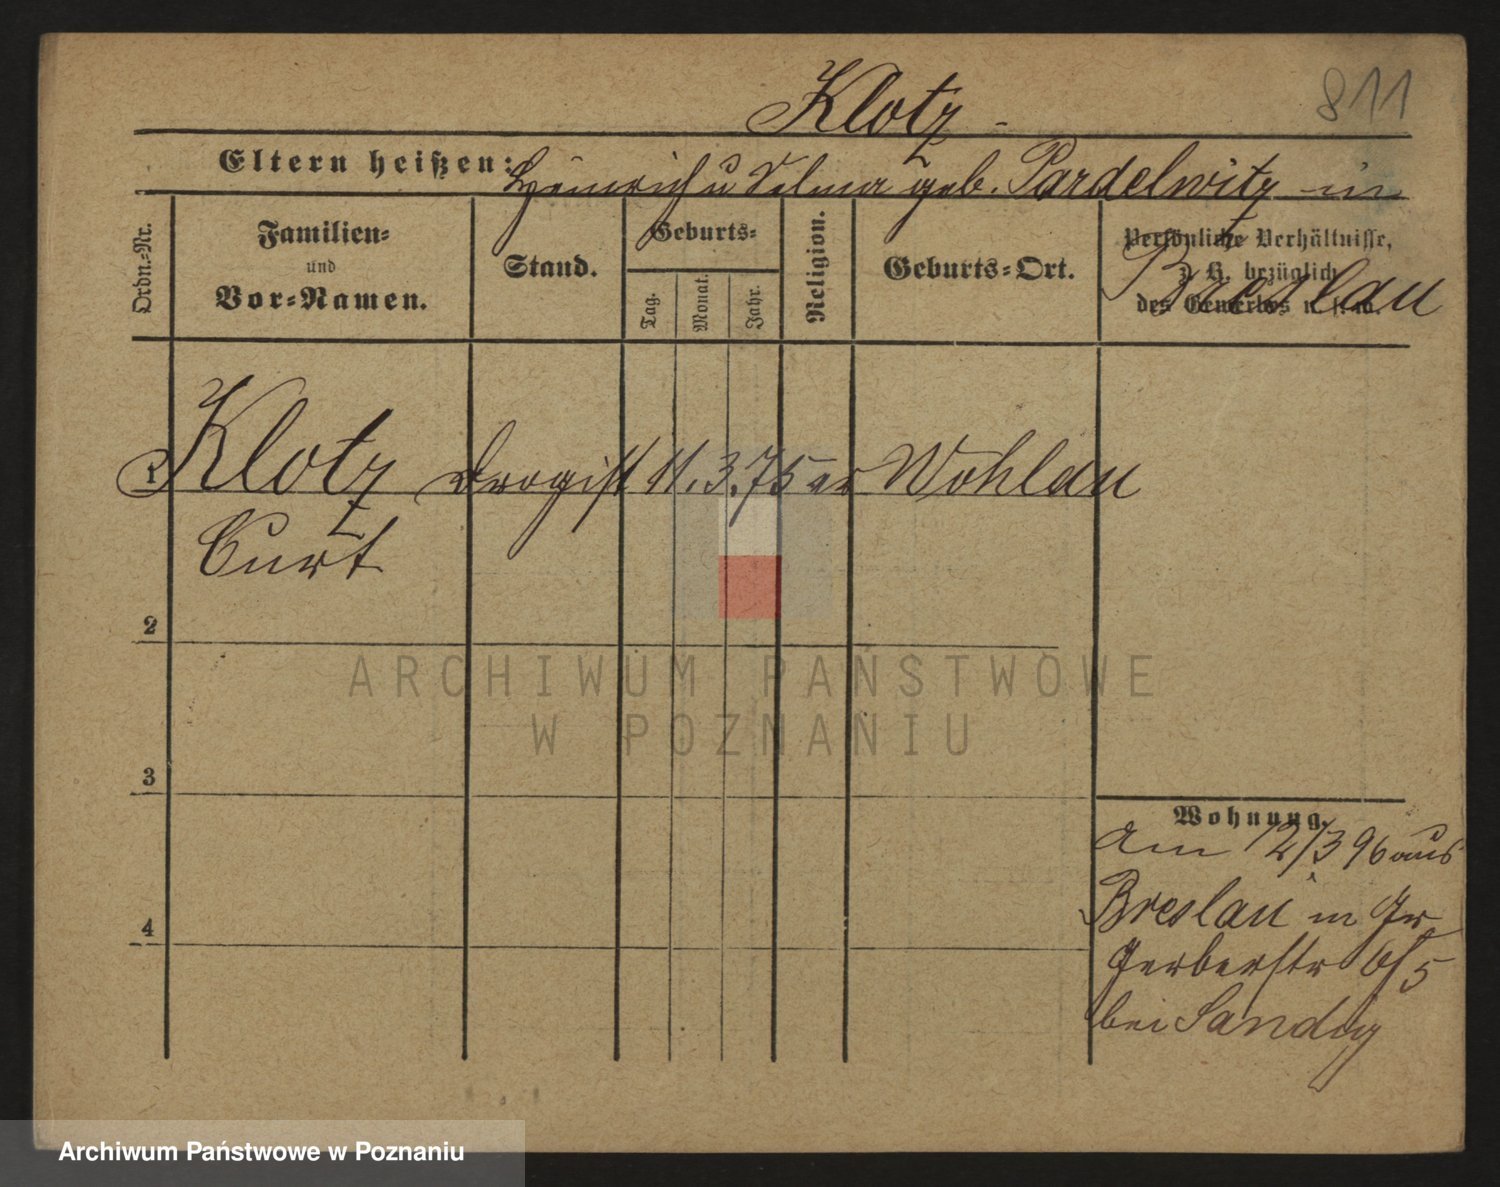 811
Klotz
Eltern heißen: Heinrich u Selma geb. Pardelwitz in
Breslau
Ordn.-Nr.
Familien-
und
Vor-Namen.
Stand.
Geburts-
Tag.
Monat.
Jahr.
Religion.
Geburts-Ort.
Persönliche Verhältnisse,
z. B. bezüglich
des Gewerbes u. s. w.
1 Klotz Drogist 11. 3. 75 ev Wohlau
Curt
2
3
4
Wohnung.
Am 12/3 96 aus
Breslau in Gr
Gerberstr 6/5
bei Sandig
ARCHIWUM PAŃSTWOWE
W POZNANIU
Archiwum Państwowe w Poznaniu